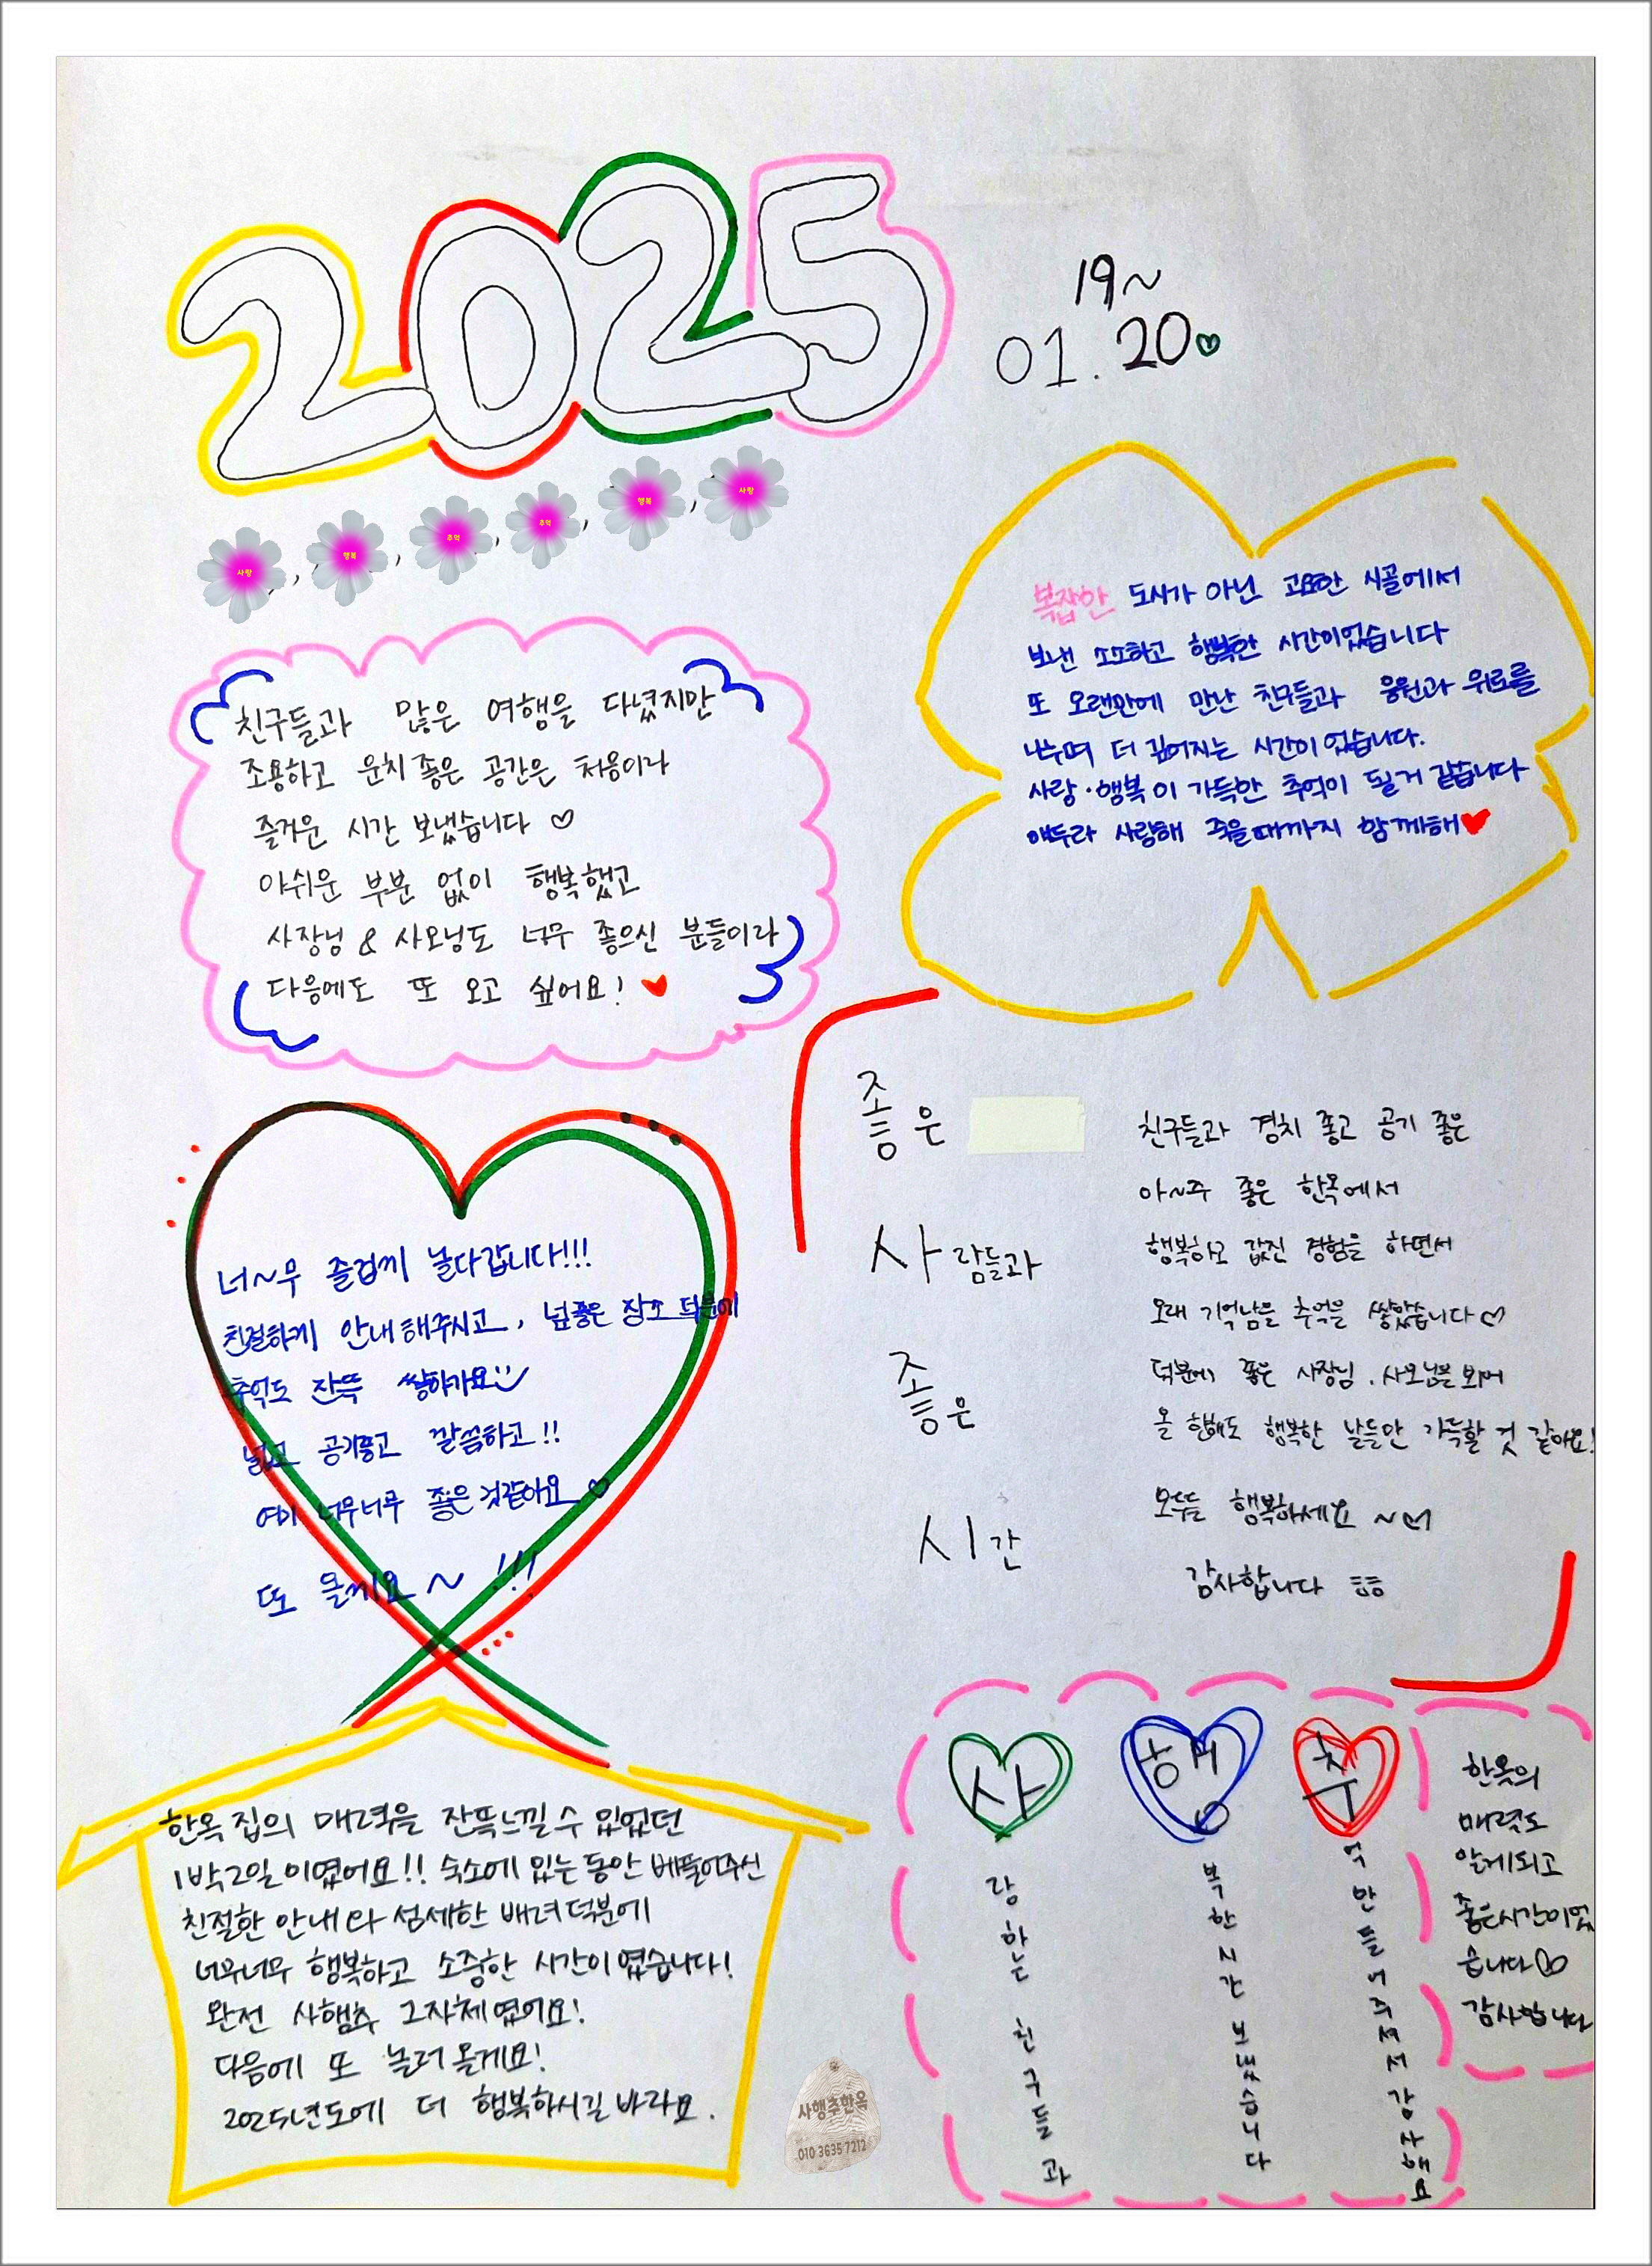 2025
19~
01. 20♡
사랑, 행복, 추억, 추억, 행복, 사랑
친구들과 많은 여행을 다녔지만
조용하고 운치 좋은 공간은 처음이라
즐거운 시간 보냈습니다 ♡
아쉬운 부분 없이 행복했고
사장님 & 사모님도 너무 좋으신 분들이라
다음에도 또 오고 싶어요! ♥
복잡한 도시가 아닌 고요한 시골에서
보낸 소소하고 행복한 시간이었습니다
또 오랜만에 만난 친구들과 응원과 위로를
나누며 더 깊어지는 시간이었습니다.
사랑·행복이 가득한 추억이 될거 같습니다
얘두라 사랑해 죽을때까지 함께해♥
너~무 즐겁게 놀다갑니다!!!
친절하게 안내해주시고, 넘좋은 장소 덕분에
추억도 잔뜩 쌓아가요
넓고 공기좋고 깔쌈하고!!
여기 너무너무 좋은것같아요♡
또 올게요~ !!!
좋은
사람들과
좋은
시간
친구들과 경치 좋고 공기 좋은
아~주 좋은 한옥에서
행복하고 값진 경험을 하면서
오래 기억남을 추억을 쌓았습니다♡
덕분에 좋은 사장님, 사모님을 뵈어
올 한해도 행복한 날들만 가득할 것 같아요!
모두들 행복하세요 ~♡
감사합니다 ㅎㅎ
한옥 집의 매력을 잔뜩느낄수 있었던
1박2일이였어요!! 숙소에 있는동안 베풀어주신
친절한 안내와 섬세한 배려덕분에
너무너무 행복하고 소중한 시간이였습니다!
완전 사행추 그자체였어요!
다음에 또 놀러올게요!
2025년도에 더 행복하시길 바라요.
사랑하는 친구들과
행복한시간 보냈습니다
추억만들어주셔서 감사해요
한옥의
매력도
알게되고
좋은시간이었
습니다♡
감사합니다
사행추한옥
010 3635 7212